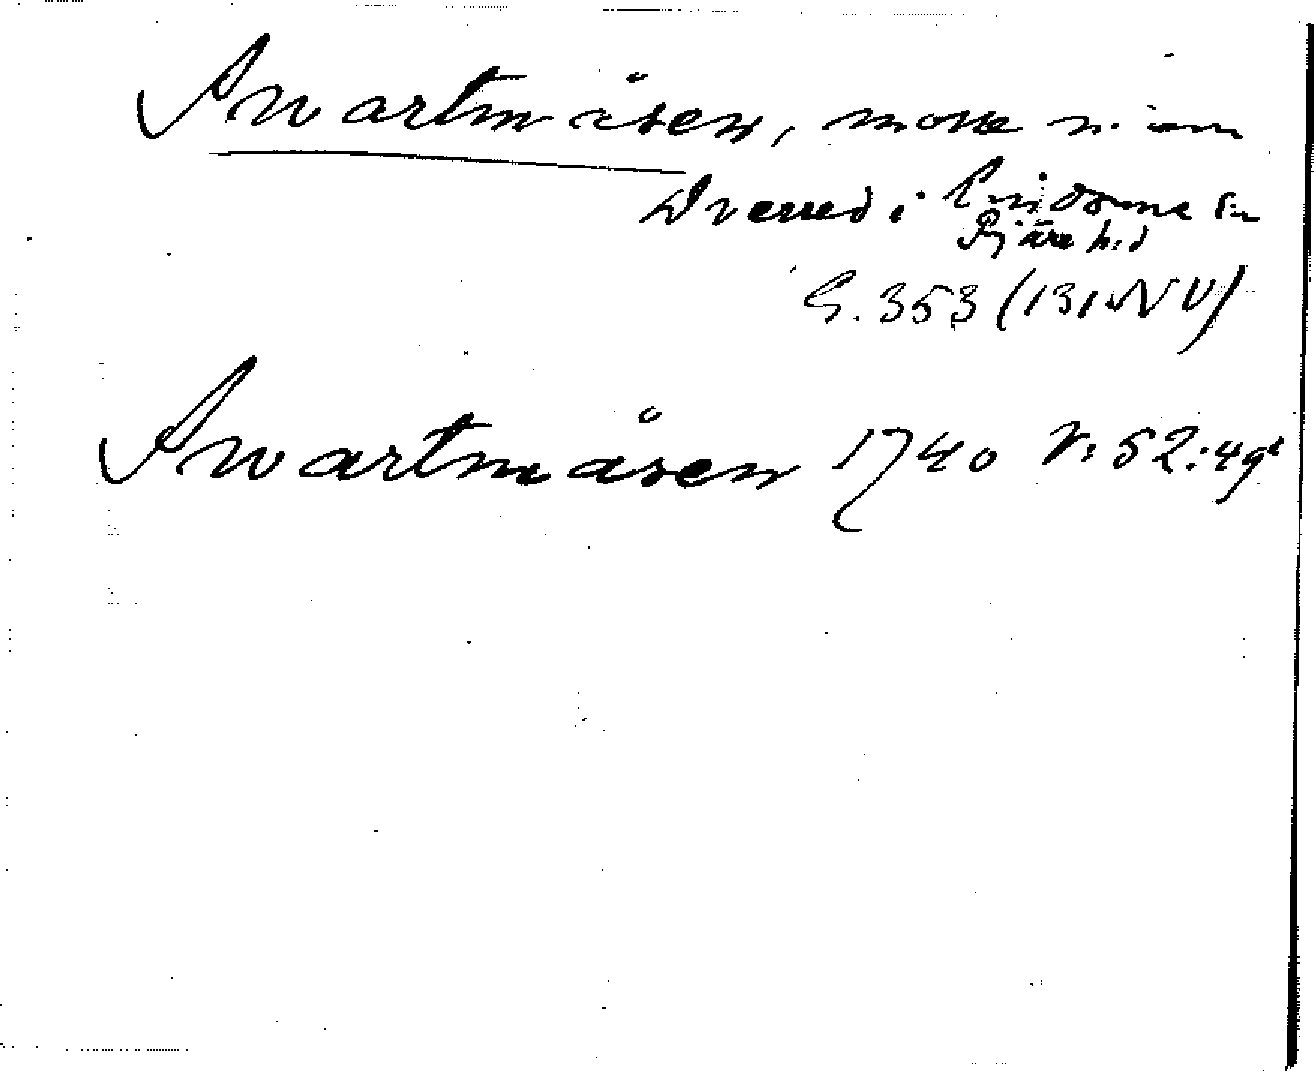 Swartmåsen, mosse n. om
Dvered i Lindome sn
Fjäre hd
G. 353 (131 NV)
Swartmåsen 1740 N: 52:49¹